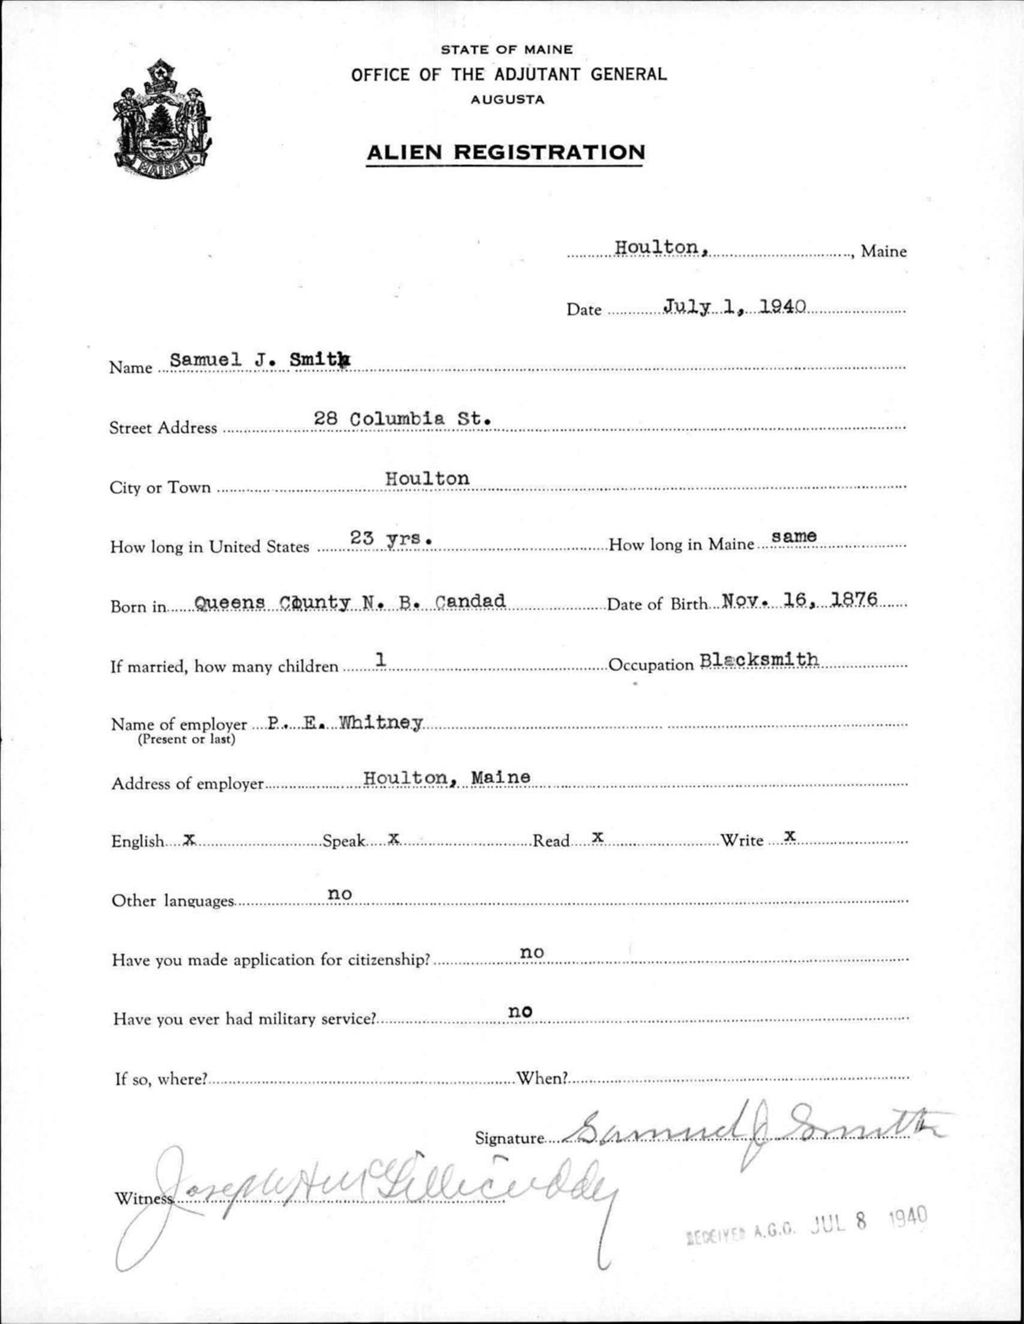 STATE OF MAINE
OFFICE OF THE ADJUTANT GENERAL
AUGUSTA
ALIEN REGISTRATION
MAINE
Houlton, , Maine
Date July 1, 1940
Name Samuel J. Smith
Street Address 28 Columbia St.
City or Town Houlton
How long in United States 23 yrs. How long in Maine same
Born in Queens County N. B. Candad Date of Birth Nov. 16, 1876
If married, how many children 1 Occupation Blacksmith
Name of employer P. E. Whitney
(Present or last)
Address of employer Houlton, Maine
English x Speak x Read x Write x
Other languages no
Have you made application for citizenship? no
Have you ever had military service? no
If so, where? When?
Signature Samuel J Smith
Witness Joseph H McGillicuddy
RECEIVED A.G.O. JUL 8 1940